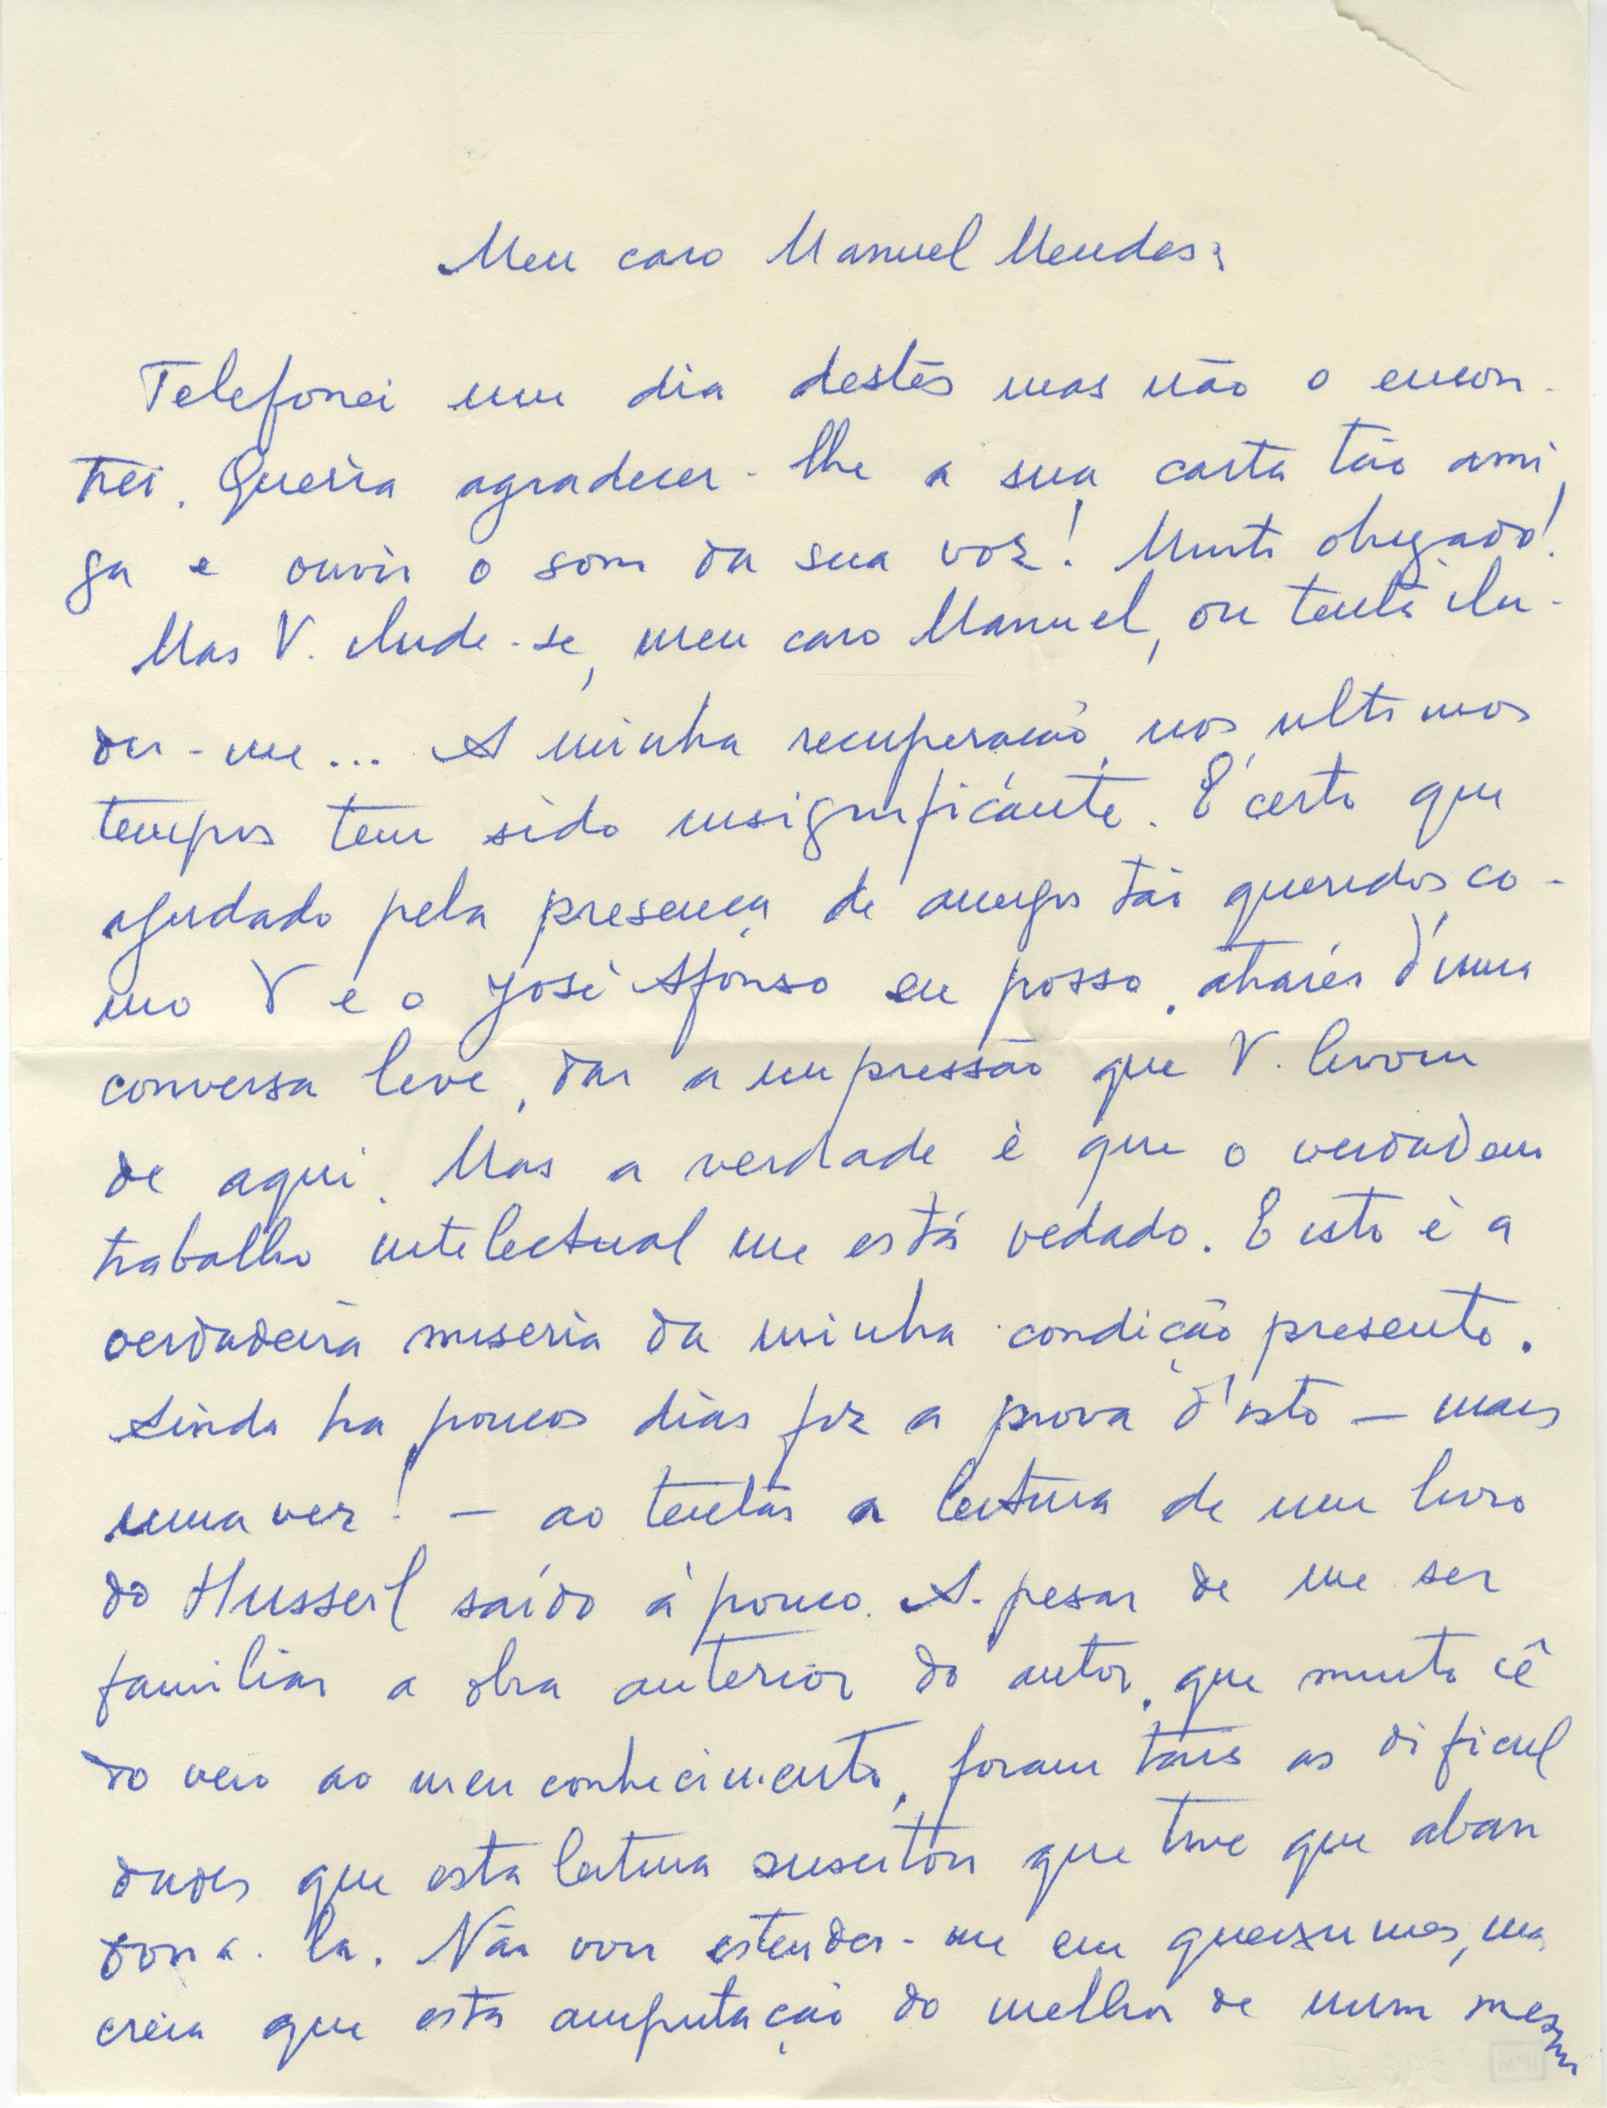 Meu caro Manuel Mendes:
Telefonei um dia destes mas não o encon-
trei. Queria agradecer-lhe a sua carta tão ami
ga e ouvir o som da sua voz! Muito obrigado!
Mas V. ilude-se, meu caro Manuel, ou tenta ilu-
dir-me... A minha recuperação, nos ultimos
tempos tem sido insignificante. É certo que
ajudado pela presença de amigos tão queridos co-
mo V e o José Afonso eu posso, através d'uma
conversa leve, dar a impressão que V. levou
de aqui. Mas a verdade è que o verdadeiro
trabalho intelectual me está vedado. E isto è a
verdadeira miseria da minha condição presente.
Ainda ha poucos dias fiz a prova d'isto — mais
uma vez! — ao tentar a leitura de um livro
do Husserl saído á pouco. A-pesar de me ser
familiar a obra anterior do autor, que muito cê
do veio ao meu conhecimento, foram tais as dificul
dades que esta leitura suscitou que tive que aban
dona-la. Não vou estender-me em queixumes, mas
creia que esta amputação do melhor de mim mesmo